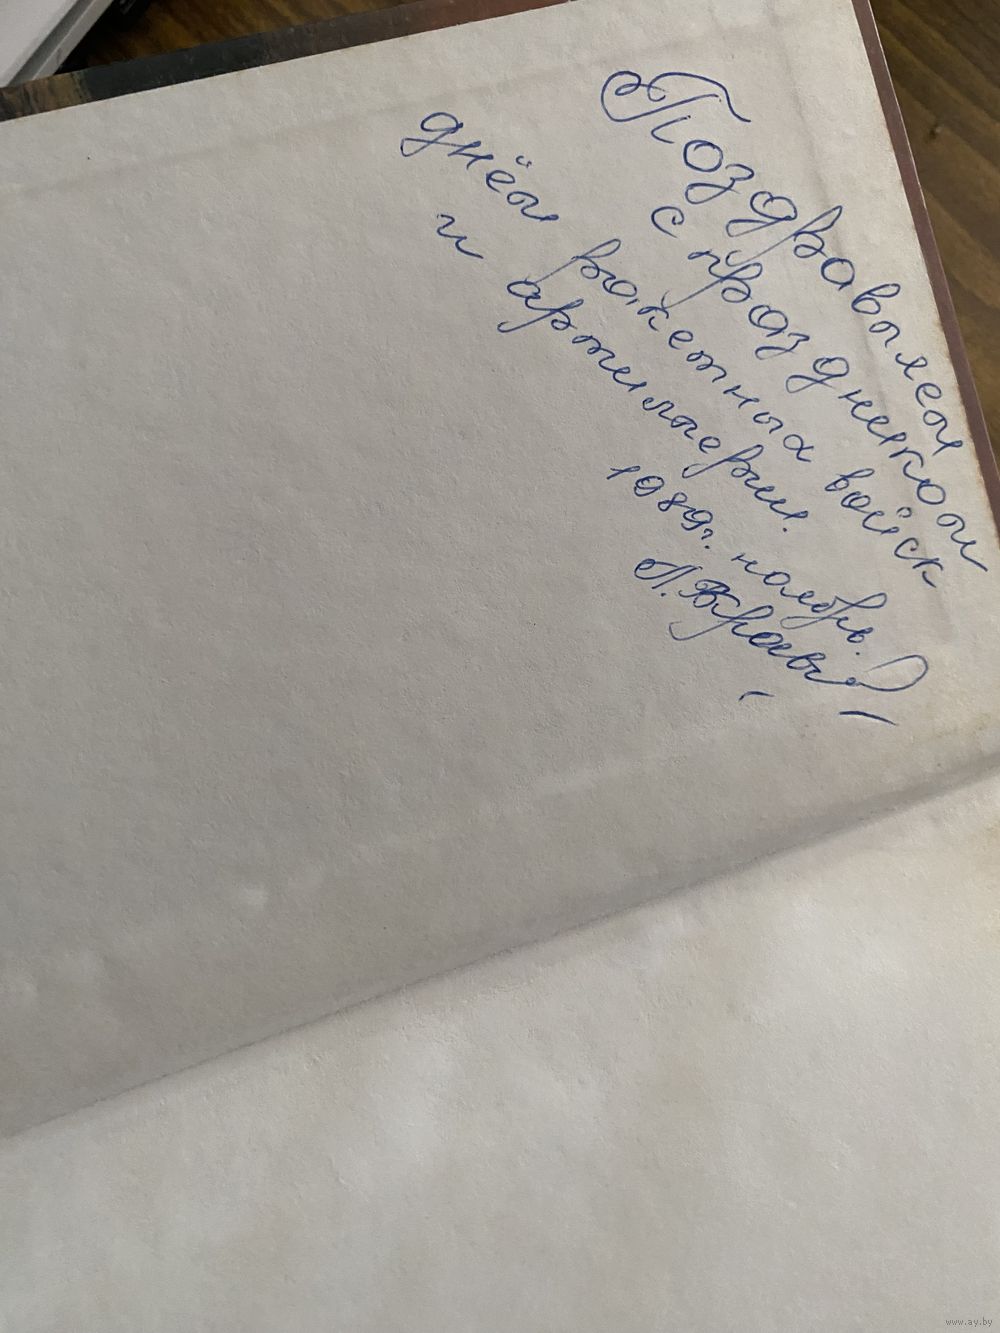 Поздравляем
с праздником
днём ракетных войск
и артилерии.
1989г. ноябрь.
www.ay.by